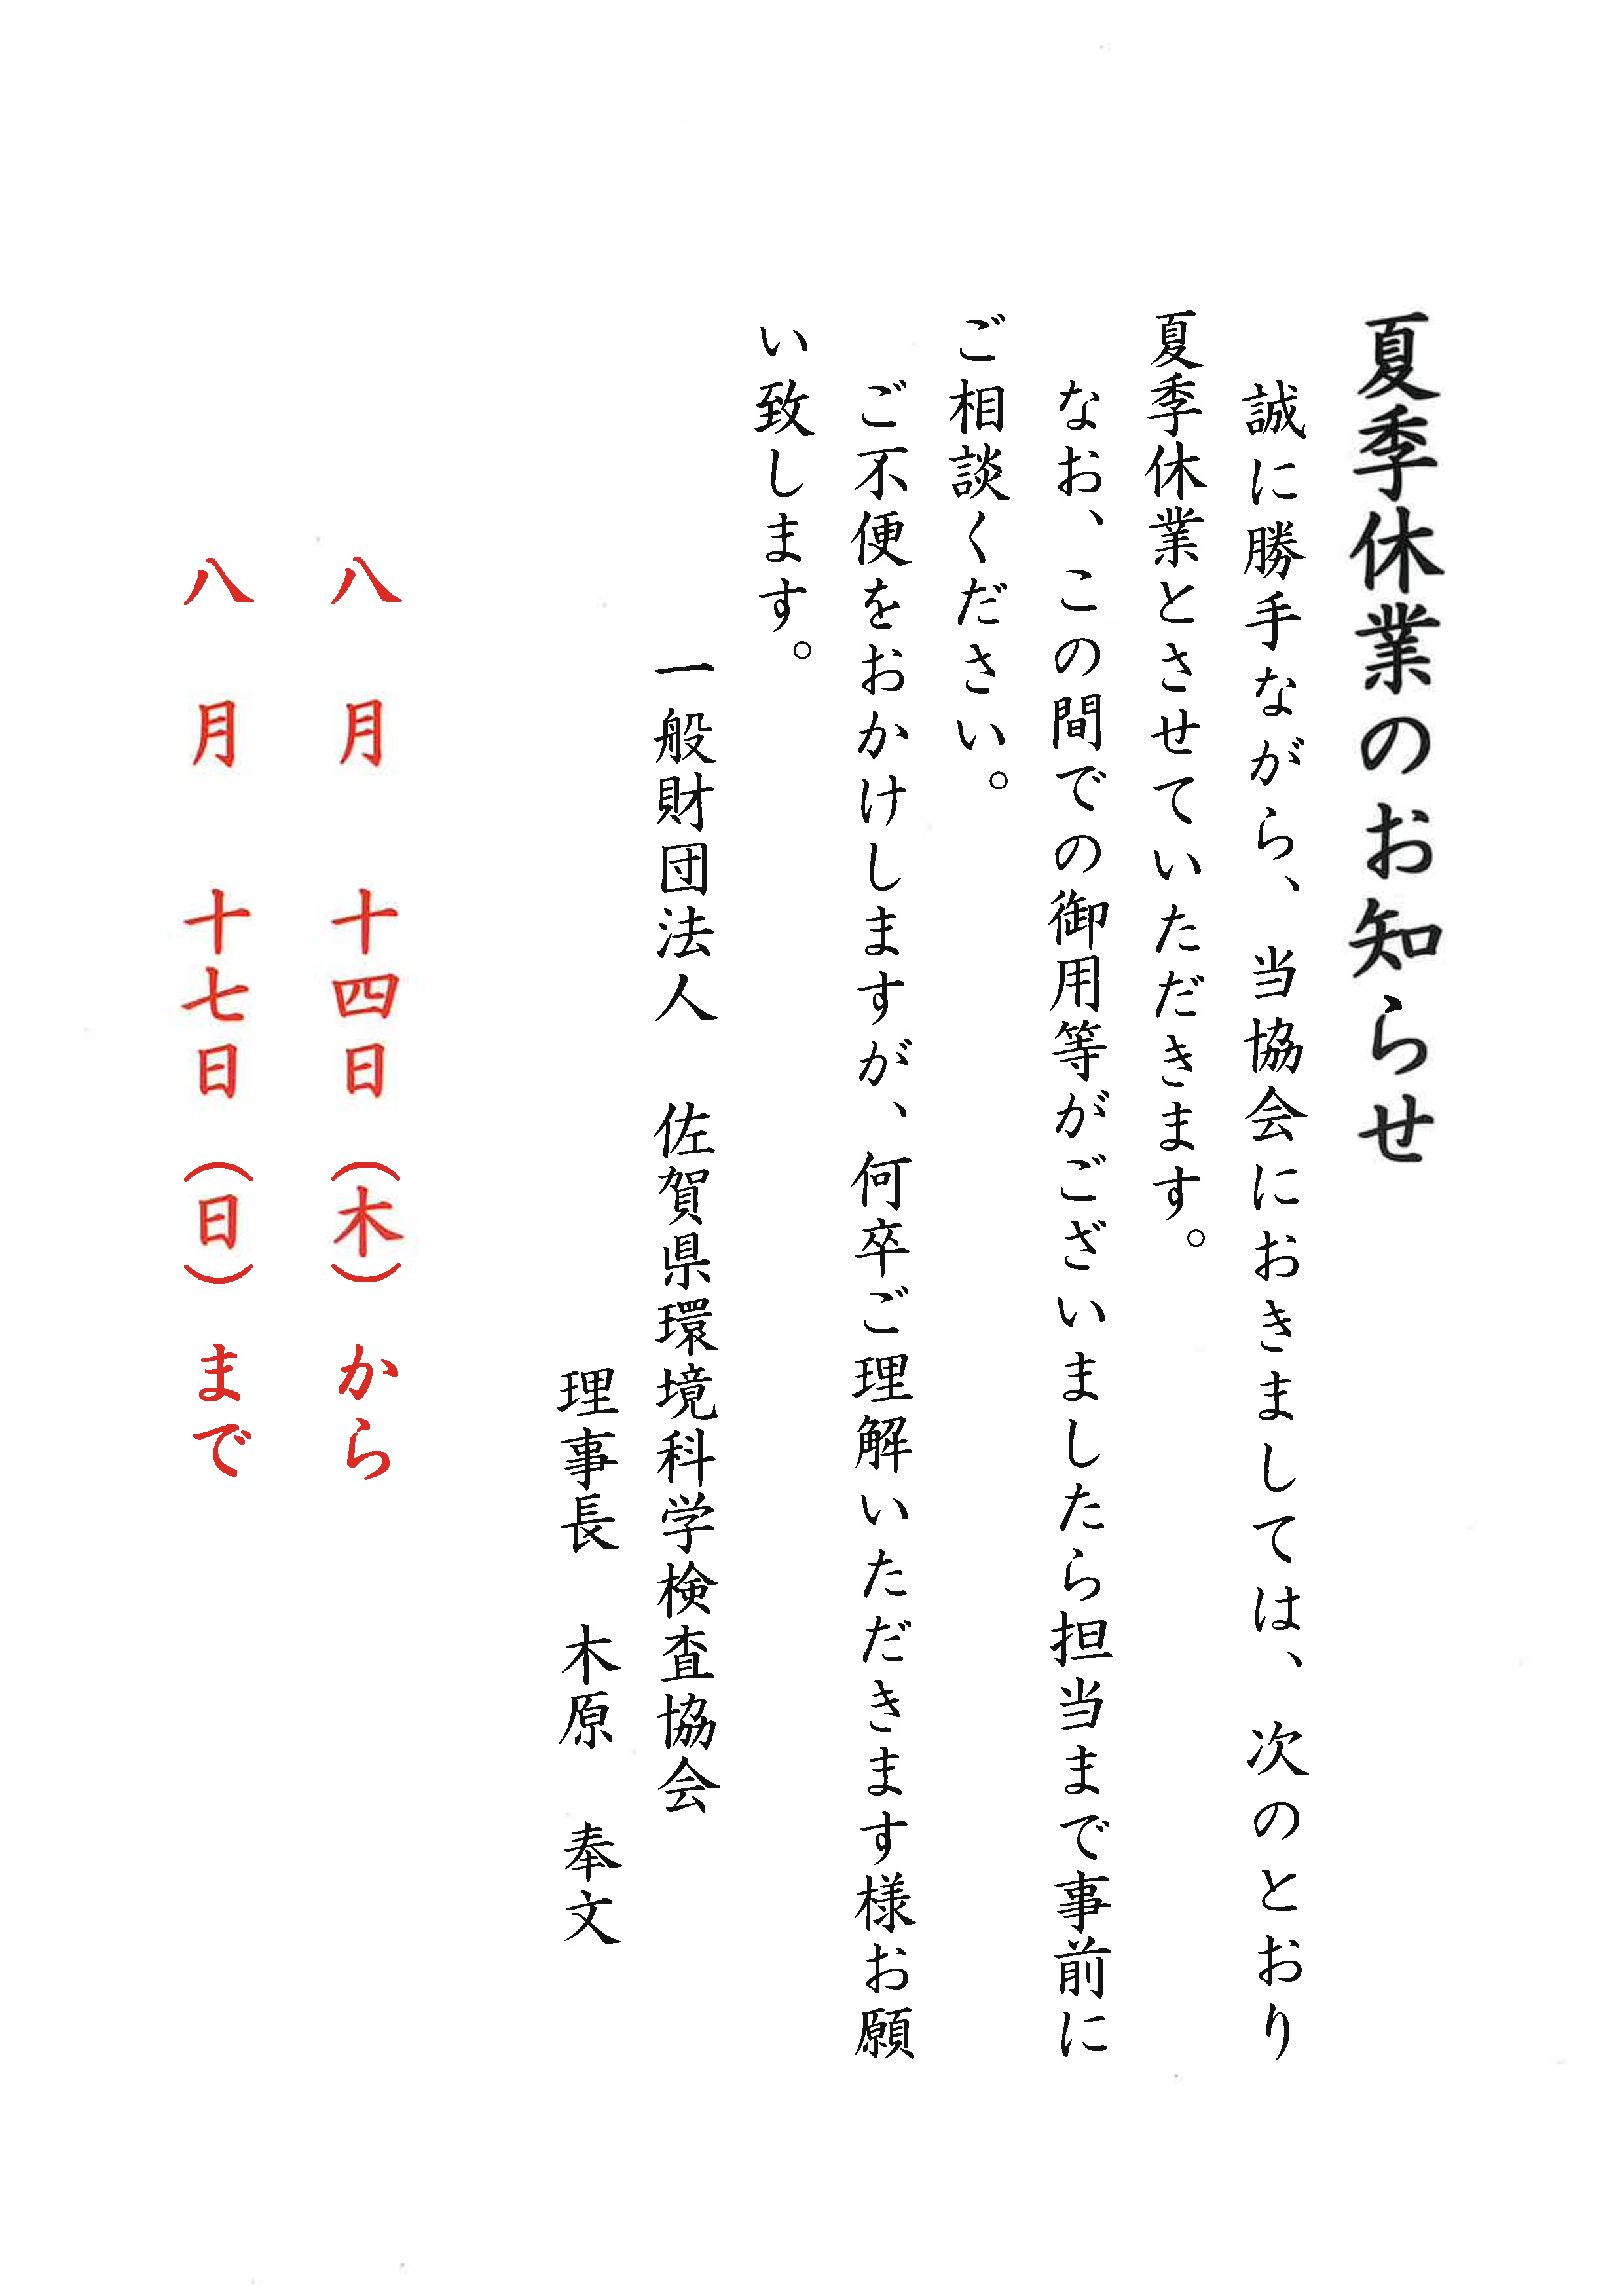 夏季休業のお知らせ
誠に勝手ながら、当協会におきましては、次のとおり
夏季休業とさせていただきます。
なお、この間での御用等がございましたら担当まで事前に
ご相談ください。
ご不便をおかけしますが、何卒ご理解いただきます様お願
い致します。
一般財団法人　佐賀県環境科学検査協会
理事長　木原　奉文
八月　十四日（木）から
八月　十七日（日）まで